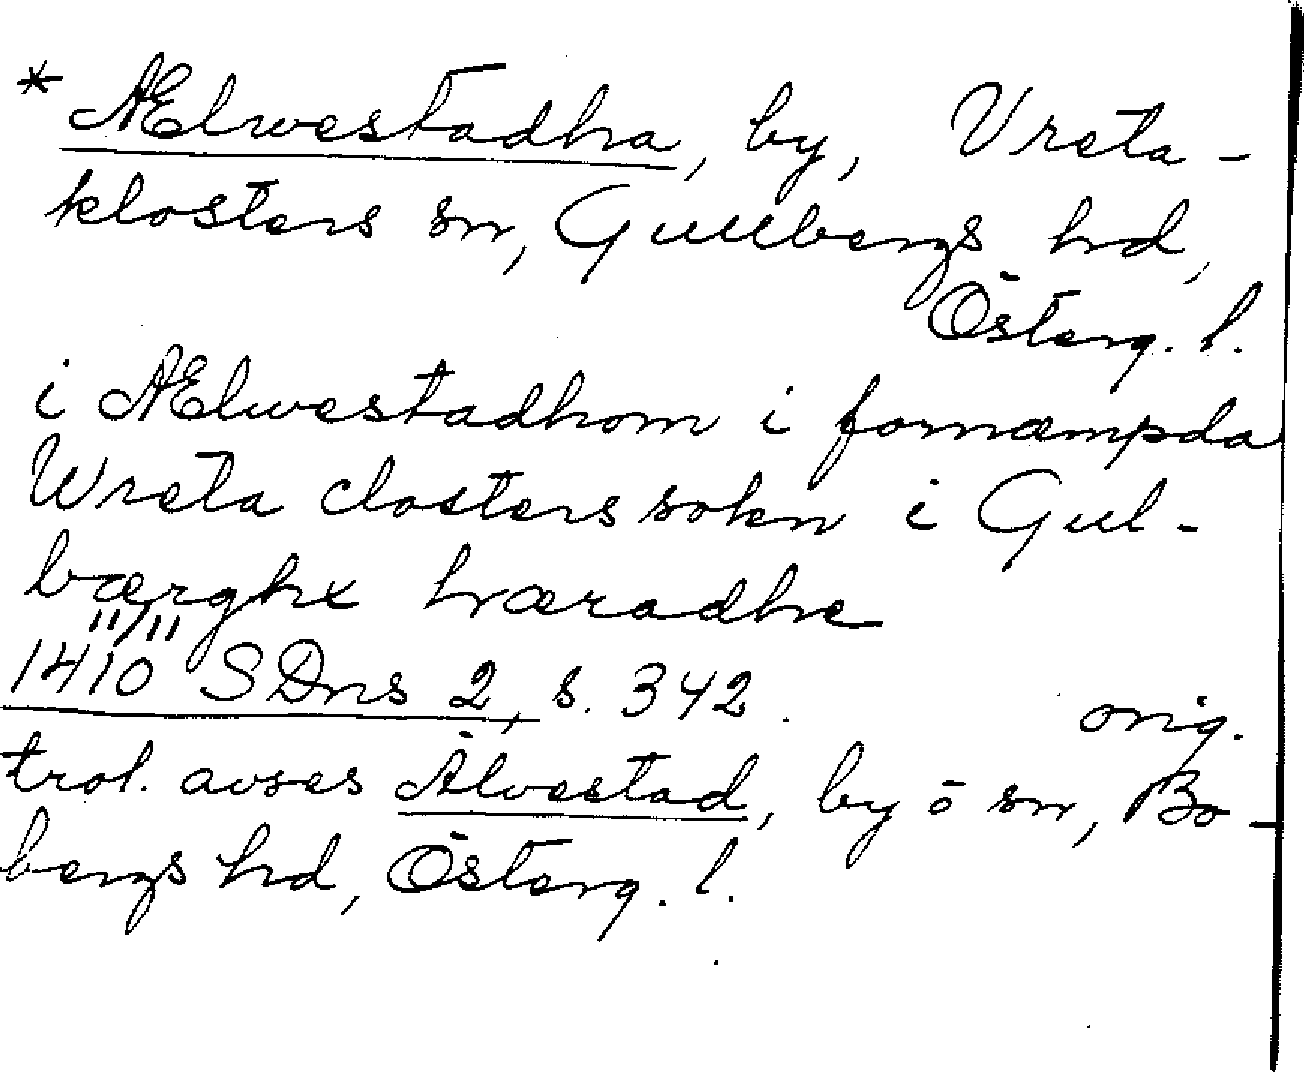 * Ælwestadha, by, Vreta-
klosters sn, Gullbergs hd,
Österg. l.
i Ælwestadhom i fornæmpda
Wreta closters sokn i Gul-
bærghx hæradhe
11/11
1410 SDns 2, s. 342. orig.
trol. avses Älvestad, by o sn, Bo-
bergs hd, Österg. l.